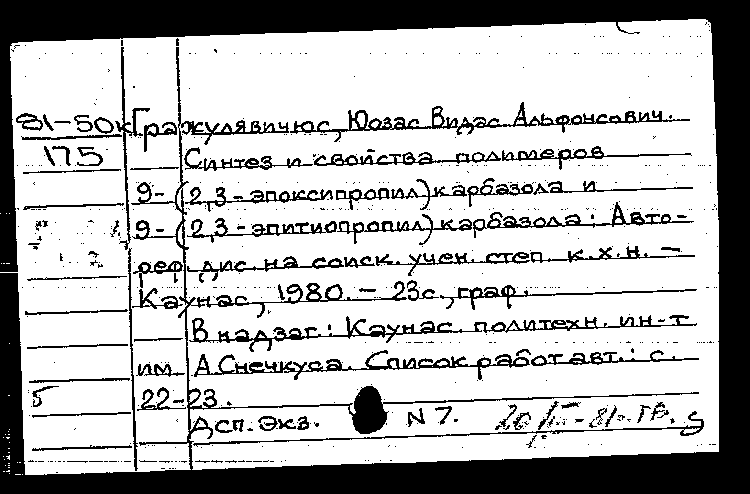 81-50к Гражулявичюс, Юозас Видас Альфонсович.
175 Синтез и свойства полимеров
9-(2,3-эпоксипропил)карбазола и
9-(2,3-эпитиопропил)карбазола: Авто-
реф. дис. на соиск. учен. степ. к.х.н. —
Каунас, 1980. — 23с., граф.
В надзаг.: Каунас. политехн. ин-т
им. А.Снечкуса. Список работ авт.: с.
5 22-23.
Дсп. Экз. N 7.